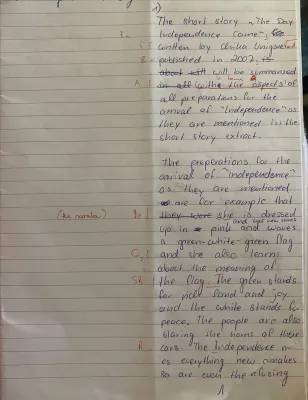 1)
The short story „The Day
Independence Came",
written by Chika Unigwe
published in 2007,
will be summarised
with the aspects of
all preparations for the
arrival of "Independence" as
they are mentioned in the
short story extract.
The preparations for the
arrival of "independence"
as they are mentioned
are for example that
(the narrator) she is dressed
up in pink and waves
a green-white-green flag
and she also learns
about the meaning of
the flag. The green stands
for rich land and joy
and the white stands for
peace. The people are also
blaring the horns of their
cars. The Independence
es everything new
so are even the